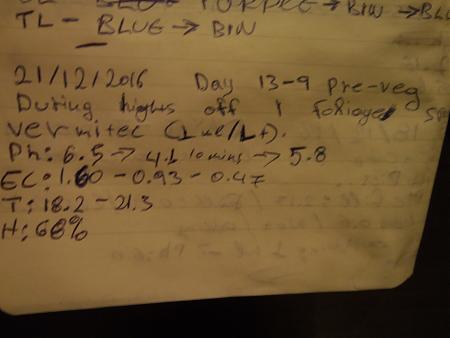 PURPLE → BIN → BLU
TL - BLUE → BIN
21/12/2016 Day 13-9 Pre-veg
During lights off 1 foliage
vermitec (1ml/Lt).
Ph: 6.5 → 4.1 10mins → 5.8
EC: 1.60 - 0.93 - 0.47
T: 18.2 - 21.3
H: 68%